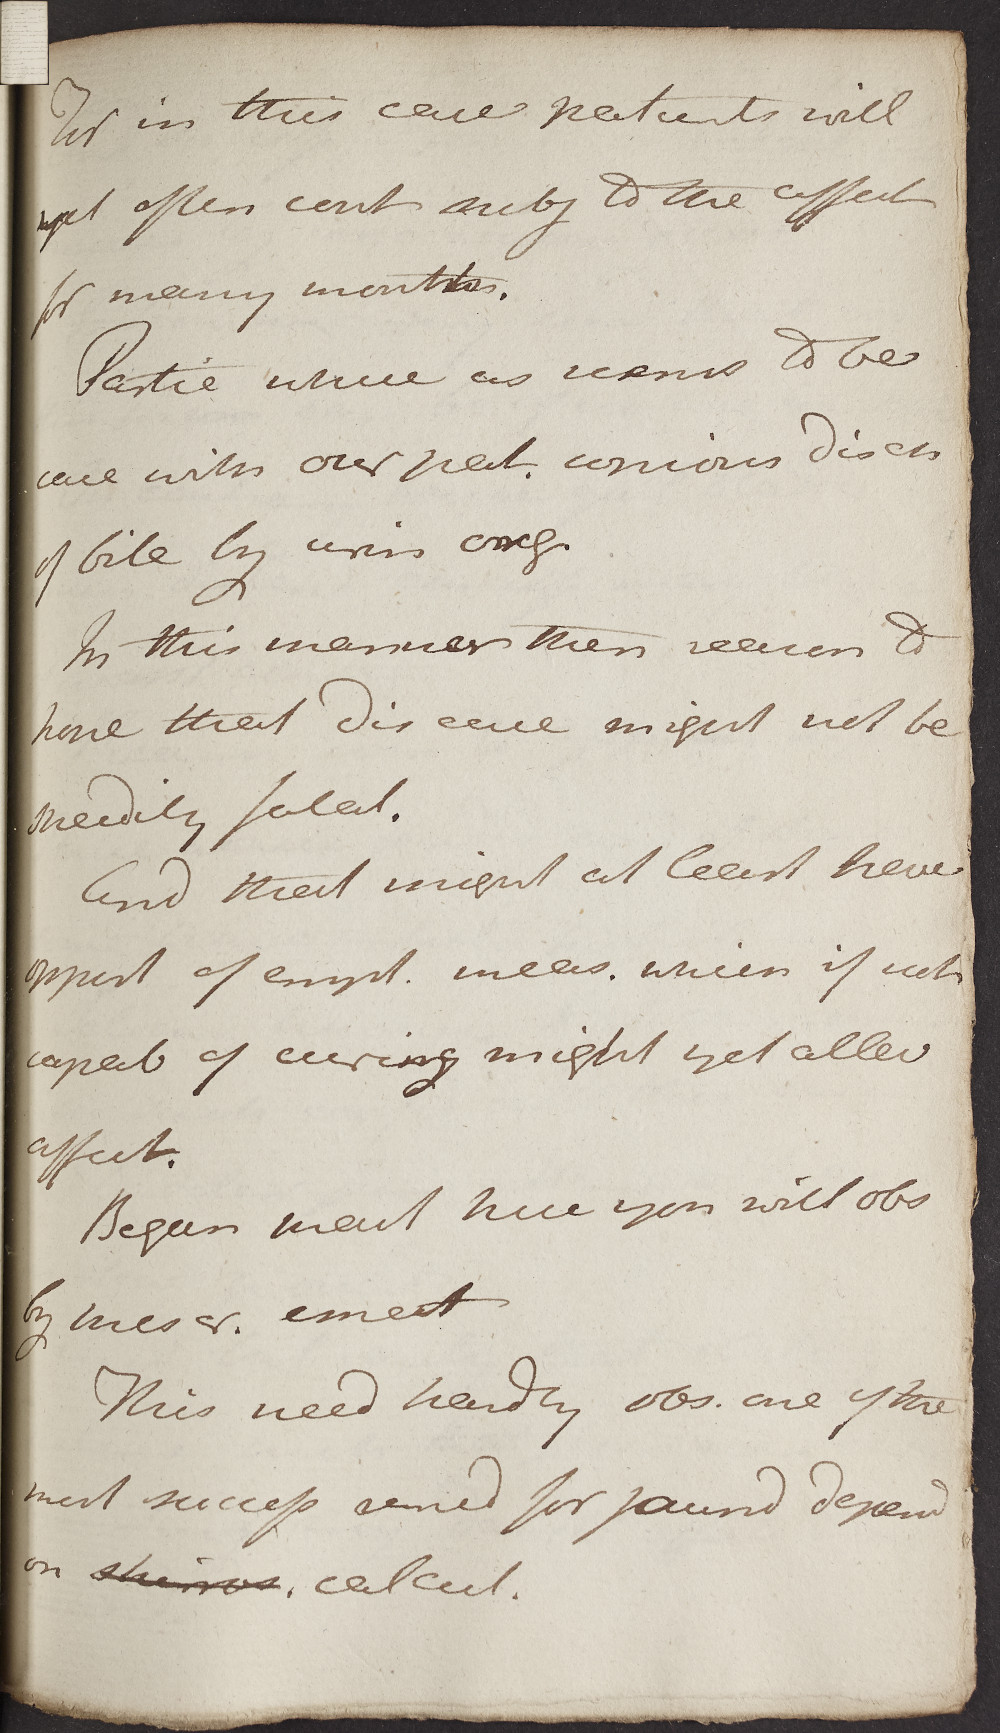 For in this case patients will
yet often cont subj to the affect
for many months.
Partic where as seems to be
case with our pat. copious disch
of bile by urin org.
In this manner then reason to
hope that disease might not be
speedily fatal.
And that might at least have
opport of empl. meas. which if not
capab of curing might yet allev
affect.
Began pract here you will obs
by emet
This need hardly obs. one of the
most success remed for jaund depend
on calcul.